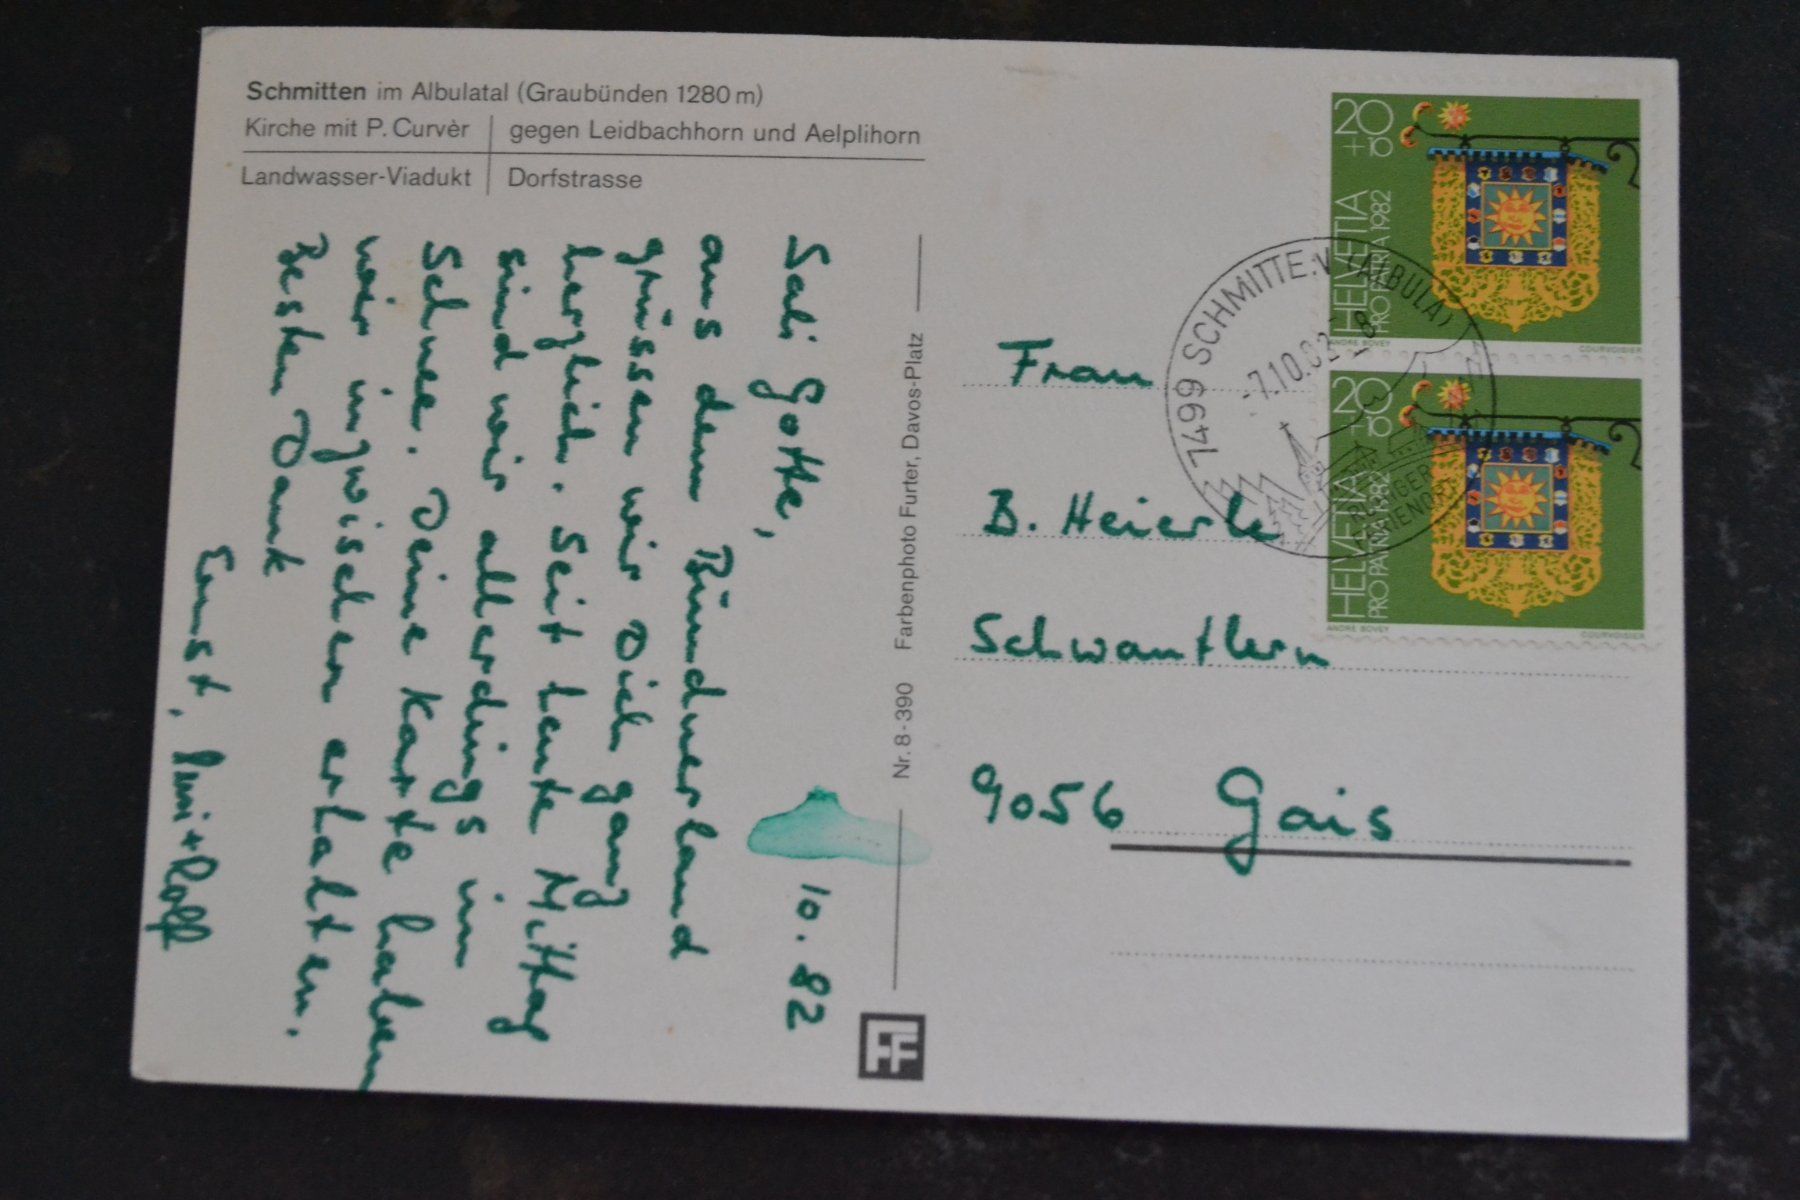 Schmitten im Albulatal (Graubünden 1280 m)
Kirche mit P. Curvèr
gegen Leidbachhorn und Aelplihorn
Landwasser-Viadukt
Dorfstrasse
10.82
Sali Gotte,
aus dem Bündnerland
grüssen wir Dich ganz
herzlich. Seit heute Mittag
sind wir allerdings im
Schnee. Deine Karte haben
wir inzwischen erhalten.
Besten Dank
Ernst, + Rolf
Nr. 8-390 Farbenphoto Furter, Davos-Platz
FF
Frau
B. Heierle
Schwantlern
9056 Gais
20
+10
HELVETIA
PRO PATRIA 1982
ANDRE BOVEY
COURVOISIER
20
+10
HELVETIA
PRO PATRIA 1982
ANDRE BOVEY
COURVOISIER
7499 SCHMITTEN (ALBULA)
-7.10.82-8